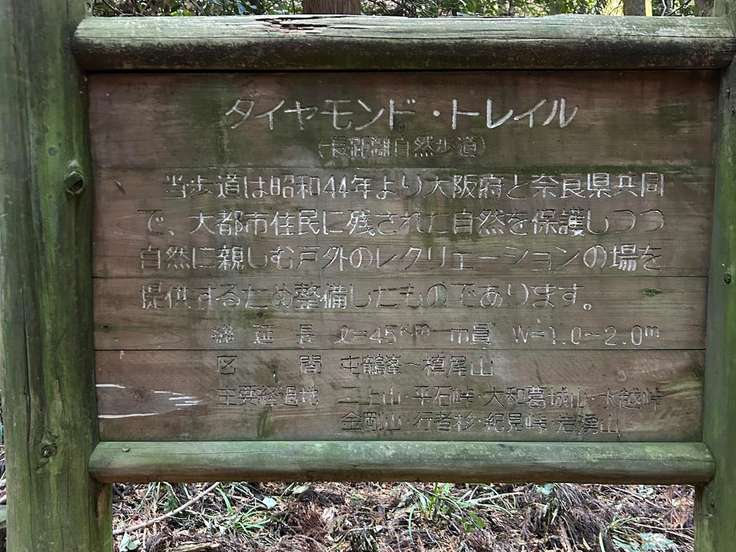 タイヤモンド・トレイル
(長距離自然歩道)
当歩道は昭和44年より大阪府と奈良県共同
で、大都市住民に残された自然を保護しつつ
自然に親しむ戸外のレクリエーションの場を
提供するため整備したものであります。
総延長 ℓ=45km 巾員 W=1.0~2.0m
区間 屯鶴峯~槇尾山
主要経過地 二上山・平石峠・大和葛城山・水越峠
金剛山・行者杉・紀見峠・岩湧山